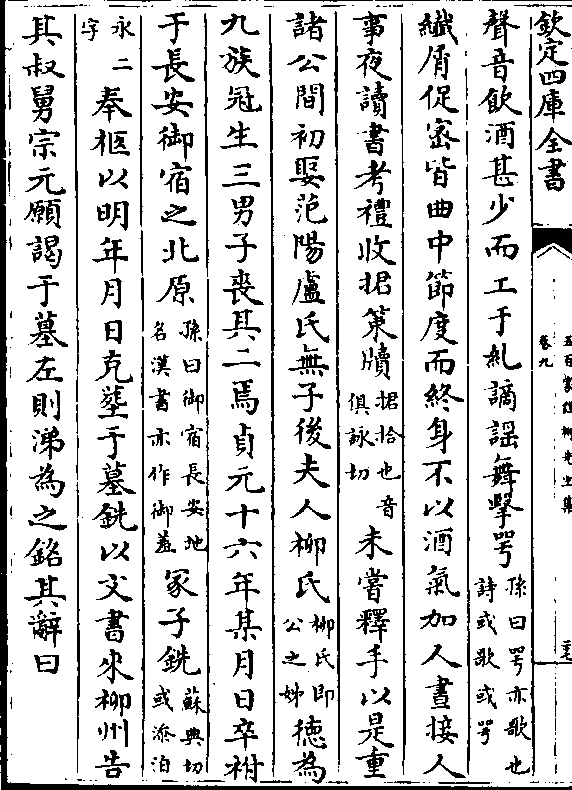 欽定四庫全書
五百家註柳先生集
卷九
聲音飲酒甚少而工于糺謫謡舞擊咢孫曰咢亦歌也詩或歌或咢
纎屑促宻皆曲中節度而終身不以酒氣加人晝接人
事夜讀書考禮收捃䇿牘捃拾也音俱詠切未嘗釋手以是重
諸公間初娶范陽盧氏無子後夫人柳氏柳氏即公之姊德為
九族冠生三男子喪其二焉貞元十六年某月日卒祔
于長安御宿之北原孫曰御宿長安地名漢書亦作御羞冢子銑蘇典切或添洎
永二字奉柩以明年月日克塟于墓銑以文書來柳州告
其叔舅宗元願謁于墓左則涕為之銘其辭曰